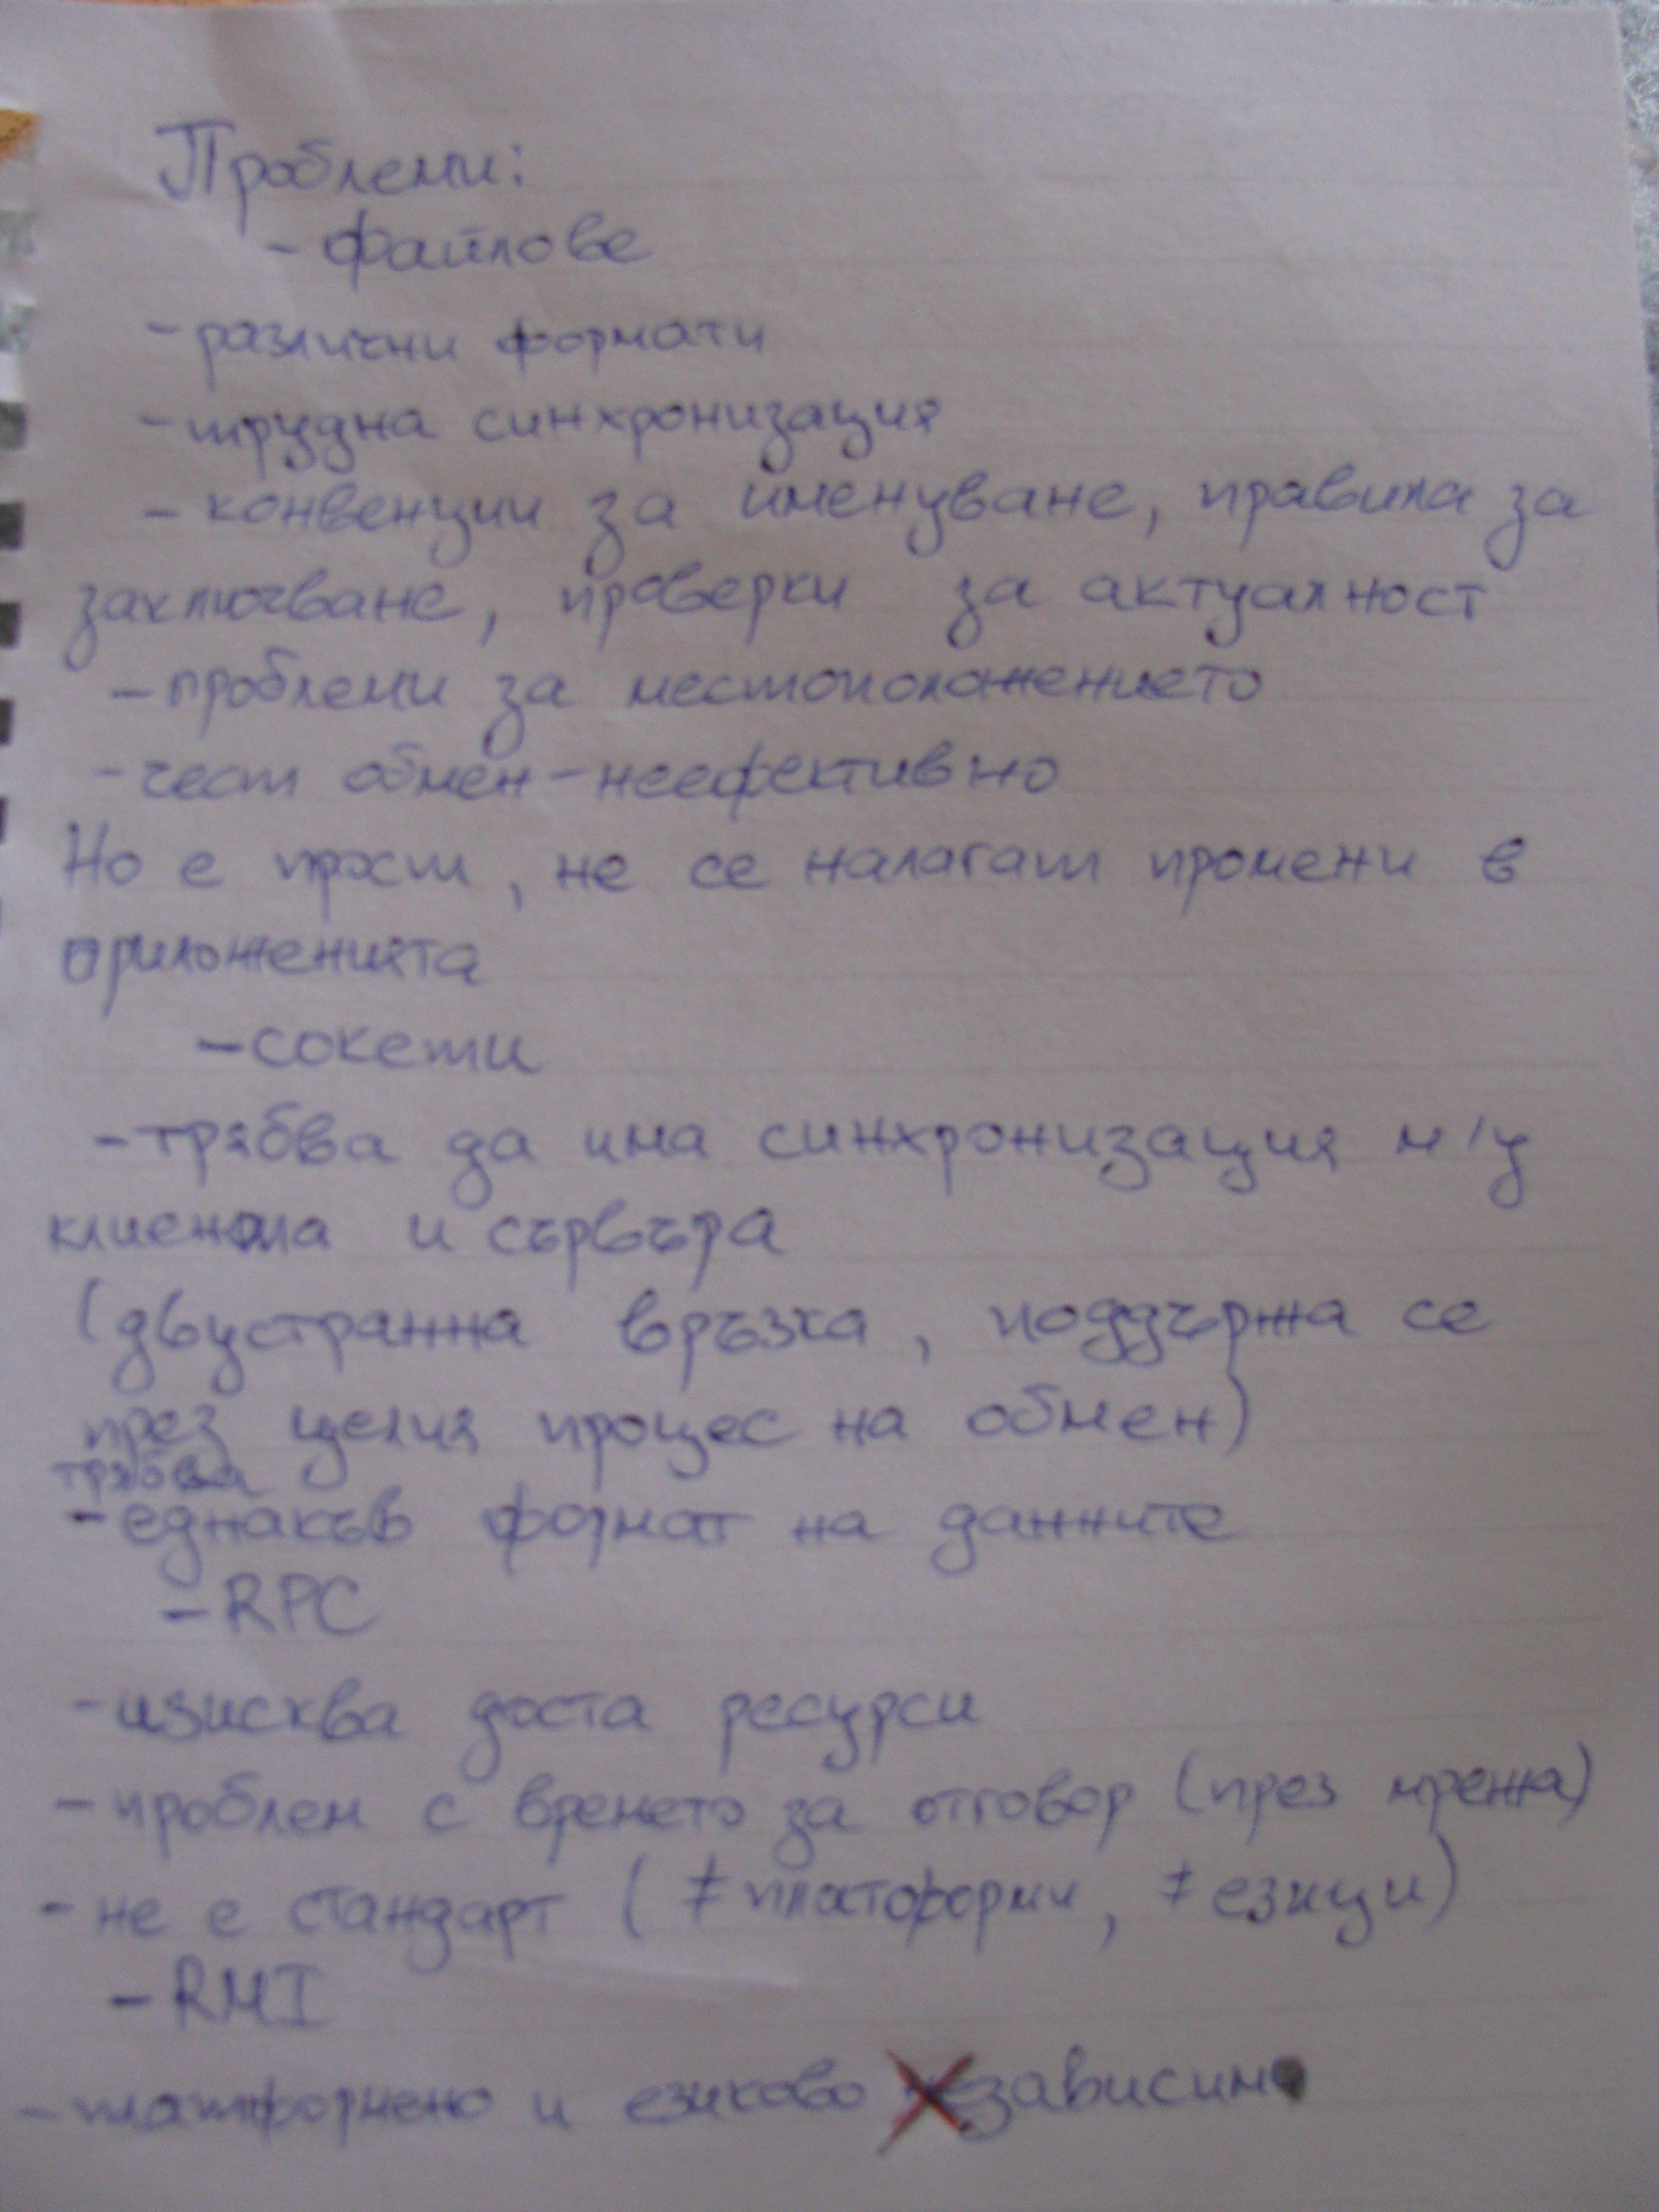 Проблеми:
- файлове
- различни формати
- трудна синхронизация
- конвенции за именуване, правила за
заключване, проверки за актуалност
- проблеми за местоположението
- чест обмен - неефективно
Но е прост, не се налагат промени в
приложенията
- сокети
- трябва да има синхронизация м/у
клиента и сървъра
(двустранна връзка, поддържа се
през целия процес на обмен)
трябва
- еднакъв формат на данните
- RPC
- изисква доста ресурси
- проблем с времето за отговор (през мрежа)
- не е стандарт (≠ платформи, ≠ езици)
- RMI
- платформено и езиково зависим